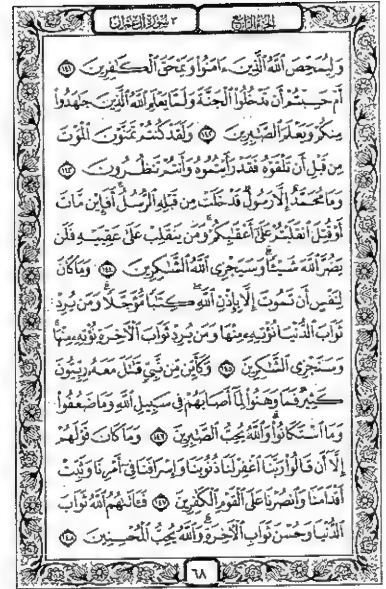 الجزء الرابع
٣ سورة آل عمران
وَلِيُمَحِّصَ ٱللَّهُ ٱلَّذِينَ ءَامَنُوا۟ وَيَمْحَقَ ٱلْكَـٰفِرِينَ ١٤١
أَمْ حَسِبْتُمْ أَن تَدْخُلُوا۟ ٱلْجَنَّةَ وَلَمَّا يَعْلَمِ ٱللَّهُ ٱلَّذِينَ جَـٰهَدُوا۟
مِنكُمْ وَيَعْلَمَ ٱلصَّـٰبِرِينَ ١٤٢ وَلَقَدْ كُنتُمْ تَمَنَّوْنَ ٱلْمَوْتَ
مِن قَبْلِ أَن تَلْقَوْهُ فَقَدْ رَأَيْتُمُوهُ وَأَنتُمْ تَنظُرُونَ ١٤٣
وَمَا مُحَمَّدٌ إِلَّا رَسُولٌ قَدْ خَلَتْ مِن قَبْلِهِ ٱلرُّسُلُ أَفَإِي۟ن مَّاتَ
أَوْ قُتِلَ ٱنقَلَبْتُمْ عَلَىٰٓ أَعْقَـٰبِكُمْ وَمَن يَنقَلِبْ عَلَىٰ عَقِبَيْهِ فَلَن
يَضُرَّ ٱللَّهَ شَيْـًٔا وَسَيَجْزِى ٱللَّهُ ٱلشَّـٰكِرِينَ ١٤٤ وَمَا كَانَ
لِنَفْسٍ أَن تَمُوتَ إِلَّا بِإِذْنِ ٱللَّهِ كِتَـٰبًا مُّؤَجَّلًا وَمَن يُرِدْ
ثَوَابَ ٱلدُّنْيَا نُؤْتِهِۦ مِنْهَا وَمَن يُرِدْ ثَوَابَ ٱلْـَٔاخِرَةِ نُؤْتِهِۦ مِنْهَا
وَسَنَجْزِى ٱلشَّـٰكِرِينَ ١٤٥ وَكَأَيِّن مِّن نَّبِىٍّ قَـٰتَلَ مَعَهُۥ رِبِّيُّونَ
كَثِيرٌ فَمَا وَهَنُوا۟ لِمَآ أَصَابَهُمْ فِى سَبِيلِ ٱللَّهِ وَمَا ضَعُفُوا۟
وَمَا ٱسْتَكَانُوا۟ وَٱللَّهُ يُحِبُّ ٱلصَّـٰبِرِينَ ١٤٦ وَمَا كَانَ قَوْلَهُمْ
إِلَّآ أَن قَالُوا۟ رَبَّنَا ٱغْفِرْ لَنَا ذُنُوبَنَا وَإِسْرَافَنَا فِىٓ أَمْرِنَا وَثَبِّتْ
أَقْدَامَنَا وَٱنصُرْنَا عَلَى ٱلْقَوْمِ ٱلْكَـٰفِرِينَ ١٤٧ فَـَٔاتَىٰهُمُ ٱللَّهُ ثَوَابَ
ٱلدُّنْيَا وَحُسْنَ ثَوَابِ ٱلْـَٔاخِرَةِ وَٱللَّهُ يُحِبُّ ٱلْمُحْسِنِينَ ١٤٨
٦٨